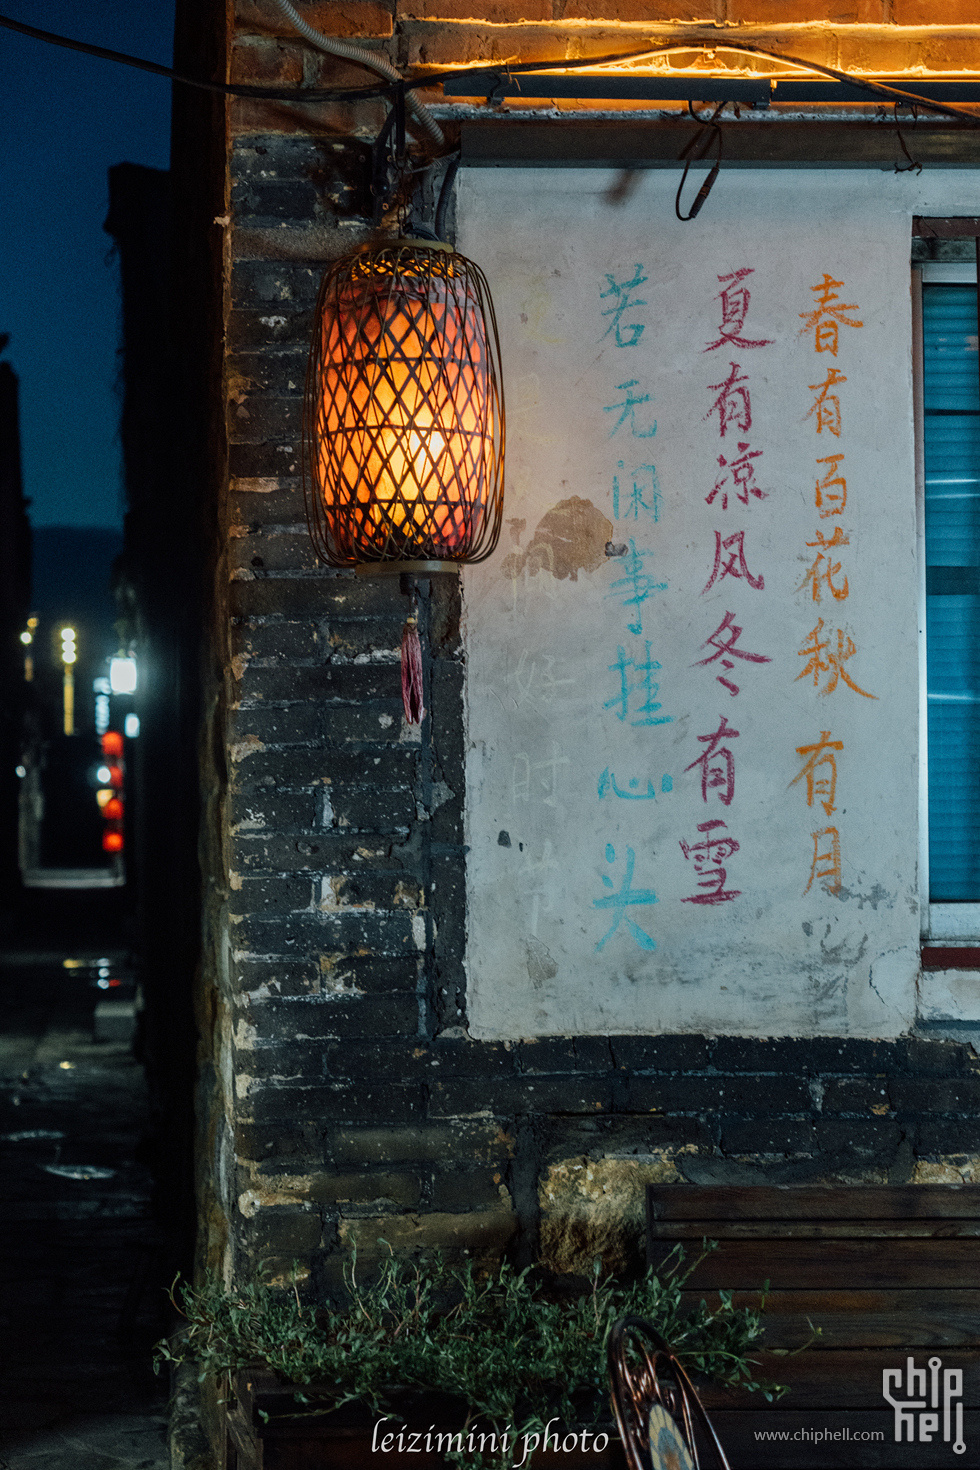 春有百花秋有月
夏有凉风冬有雪
若无闲事挂心头
间好时
leizimini photo
www.chiphell.com
chip
hell